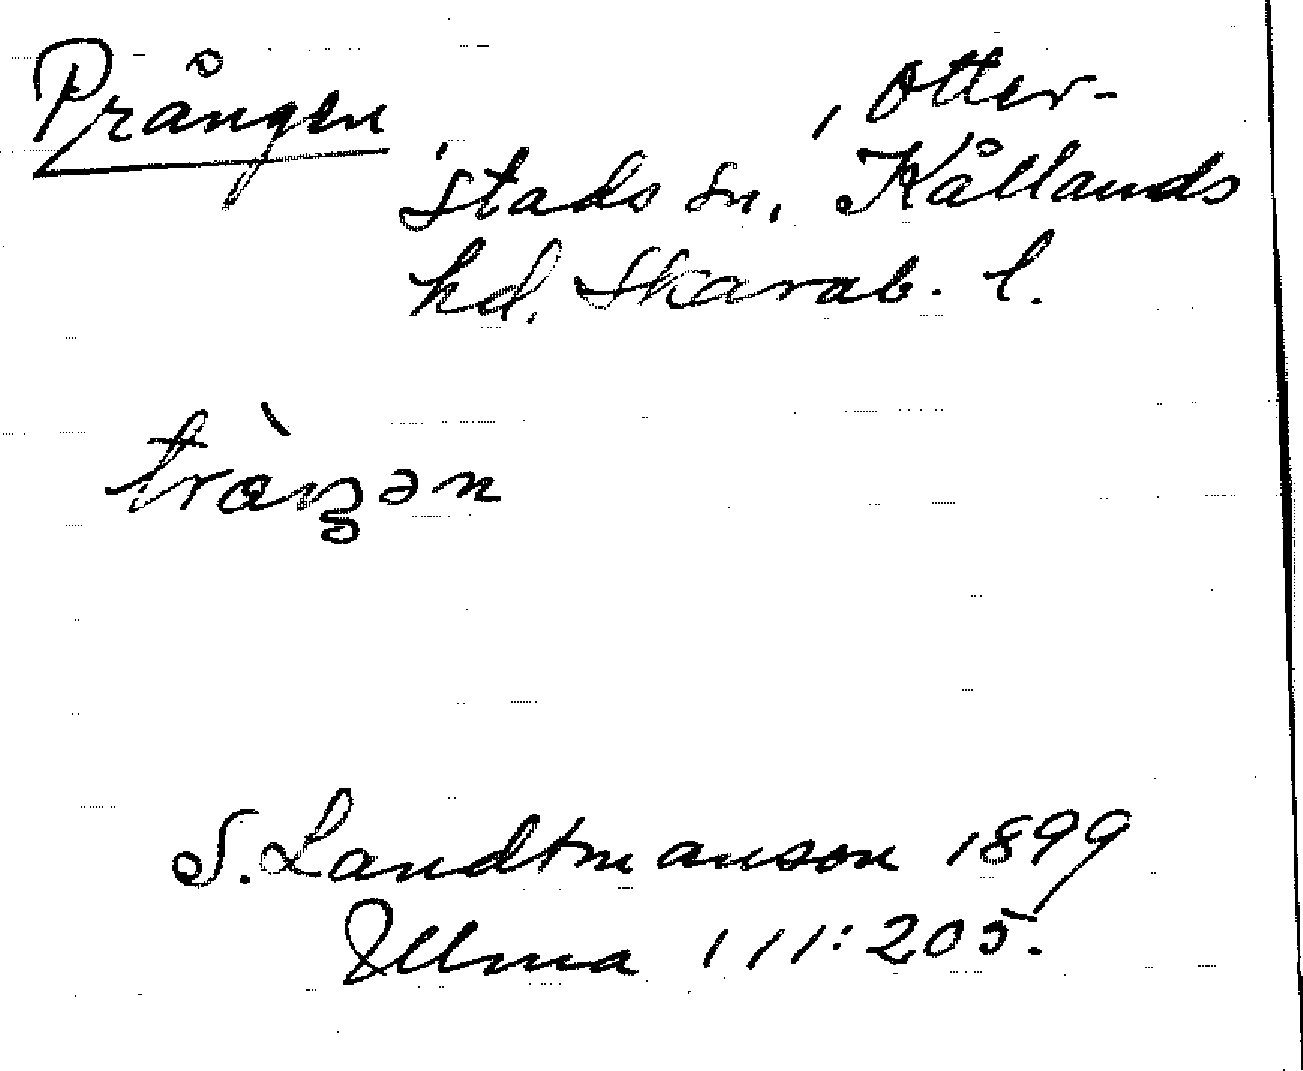 Prången
, Otter-
stads sn, Kållands
hd. Skarab. l.
S. Landtmanson 1899
Ullma 111:205.